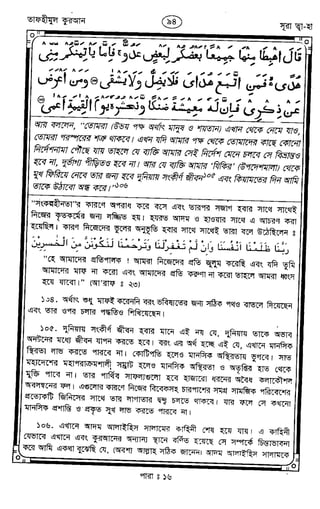 তাফহীমুল কুরআন ৯৪ সূরা ত্বা-হা
قَالَ اهْبِطَا مِنْهَا جَمِيعًا بَعْضُكُمْ لِبَعْضٍ عَدُوٌّ فَإِمَّا يَأْتِيَنَّكُمْ مِنِّي
هُدًى فَمَنِ اتَّبَعَ هُدَايَ فَلَا يَضِلُّ وَلَا يَشْقَى وَمَنْ أَعْرَضَ
عَنْ ذِكْرِي فَإِنَّ لَهُ مَعِيشَةً ضَنْكًا وَنَحْشُرُهُ يَوْمَ الْقِيَامَةِ أَعْمَى
আর বললেন, “তোমরা (উভয় পক্ষ অর্থাৎ মানুষ ও শয়তান) এখান থেকে নেমে যাও,
তোমরা পরস্পরের শত্রু থাকবে। এখন যদি আমার পক্ষ থেকে তোমাদের কাছে কোনো
নির্দেশনামা পৌঁছে যায় তাহলে যে ব্যক্তি আমার সেই নির্দেশ মেনে চলবে সে বিভ্রান্তও
হবে না, দুর্ভাগ্য পীড়িতও হবে না। আর যে ব্যক্তি আমার ‘যিকির’ (উপদেশমালা) থেকে
মুখ ফিরিয়ে নেবে তার জন্য হবে দুনিয়ায় সংকীর্ণ জীবন১০৫ এবং কিয়ামতের দিন আমি
তাকে উঠাবো অন্ধ করে।”১০৬
“সংকল্পহীনতা”র কারণে অপরাধ করে বসে এবং তারপর সজাগ হবার সাথে সাথেই
নিজের কৃতকর্মের জন্য লজ্জিত হয়। হযরত আদম ও হাওয়ার সাথে এ আচরণ করা
হয়েছিল। কারণ নিজেদের ভুলের অনুভূতি হবার সাথে সাথেই তারা বলে উঠেছিলেন :
رَبَّنَا ظَلَمْنَا أَنْفُسَنَا وَإِنْ لَمْ تَغْفِرْ لَنَا وَتَرْحَمْنَا لَنَكُونَنَّ مِنَ الْخَاسِرِينَ
“হে আমাদের প্রতিপালক ! আমরা নিজেদের প্রতি জুলুম করেছি এবং যদি তুমি
আমাদের মাফ না করো এবং আমাদের প্রতি করুণা না করো তাহলে আমরা ধ্বংস
হয়ে যাবো।” (আ'রাফ : ২৩)
১০৪. অর্থাৎ শুধু মাফই করেননি বরং ভবিষ্যতের জন্য সঠিক পথও বাতলে দিয়েছেন
এবং তার ওপর চলার পদ্ধতিও শিখিয়েছেন।
১০৫. দুনিয়ায় সংকীর্ণ জীবন হবার মানে এই নয় যে, দুনিয়ায় তাকে অভাব
অনটনের মধ্যে জীবন যাপন করতে হবে। বরং এর অর্থ হচ্ছে এই যে, এখানে মানসিক
স্থিরতা লাভ করতে পারবে না। কোটিপতি হলেও মানসিক অস্থিরতায় ভুগবে। সাত
মহাদেশের মহাপরাক্রমশালী সম্রাট হলেও মানসিক অস্থিরতা ও অতৃপ্তির হাত থেকে
মুক্তি পাবে না। তার পার্থিব সাফল্যগুলো হবে হাজারো ধরনের অবৈধ কলাকৌশল
অবলম্বনের ফল। এগুলোর কারণে নিজের বিবেকসহ চারপাশের সমগ্র সামাজিক পরিবেশের
প্রত্যেকটি জিনিসের সাথে তার লাগাতার দ্বন্দ্ব চলতে থাকবে। যার ফলে সে কখনো
মানসিক প্রশান্তি ও প্রকৃত সুখ লাভ করতে পারবে না।
১০৬. এখানে আদম আলাইহিস সালামের কাহিনী শেষ হয়ে যায়। এ কাহিনী
যেভাবে এখানে এবং কুরআনের অন্যান্য স্থানে বর্ণিত হয়েছে সে সম্পর্কে চিন্তাভাবনা
করে আমি একথা বুঝেছি যে, (অবশ্য আল্লাহ সঠিক জানেন) আদম আলাইহিস সালামকে
পারা : ১৬